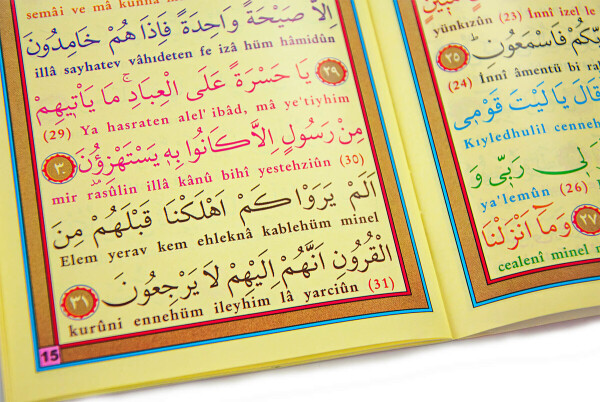 yünkızûn (23) İnnî izel le
بِرَبِّكُمْ فَاسْمَعُونِ ٢٥
(24) İnnî âmentü bi
قَالَ يَا لَيْتَ قَوْمِى
Kıyledhulil
لِى رَبِّى وَ
ya'lemûn (26)
٢٧ وَمَٓا اَنْزَلْنَا
cealenî minel
semâi ve mâ künnâ
اِلَّا صَيْحَةً وَاحِدَةً فَاِذَا هُمْ خَامِدُونَ
illâ sayhatev vâhıdeten fe izâ hüm hâmidûn
٢٩ يَا حَسْرَةً عَلَى الْعِبَادِۚ مَا يَأْتِيهِمْ
(29) Ya hasraten alel' ibâd, mâ ye'tiyhim
مِنْ رَسُولٍ اِلَّا كَانُوا بِهِ يَسْتَهْزِؤُنَ ٣٠
mir rasûlin illâ kânû bihî yestehziûn (30)
اَلَمْ يَرَوْا كَمْ اَهْلَكْنَا قَبْلَهُمْ مِنَ
Elem yerav kem ehleknâ kablehüm minel
الْقُرُونِ اَنَّهُمْ اِلَيْهِمْ لَا يَرْجِعُونَ ٣١
kurûni ennehüm ileyhim lâ yarciûn (31)
15